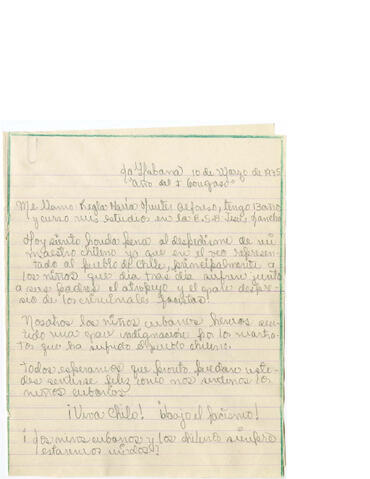 La Habana 10 de Marzo de 1975
"Año del I Congreso"
Me llamo Regla María Alfonso, tengo 13 años
y curso mis estudios en la E.S.B José
Hoy siento honda pena al despedirme de mi
maestro chileno ya que en el veo represen-
tado al pueblo de Chile, principalmente a
los niños que dia tras dia sufren junto
a sus padres el atropeyo y el gran despre-
sio de los criminales facistas.
Nosotros los niños cubanos hemos sen-
tido una gran indignación por los
que ha sufrido el pueblo chileno.
Todos esperamos que pronto puedan uste-
des sentirse feliz como nos sentimos los
niños cubanos
¡Viva Chile! ¡abajo el facismo!
¡Los niños cubanos y los chilenos siempre
estaremos unidos!